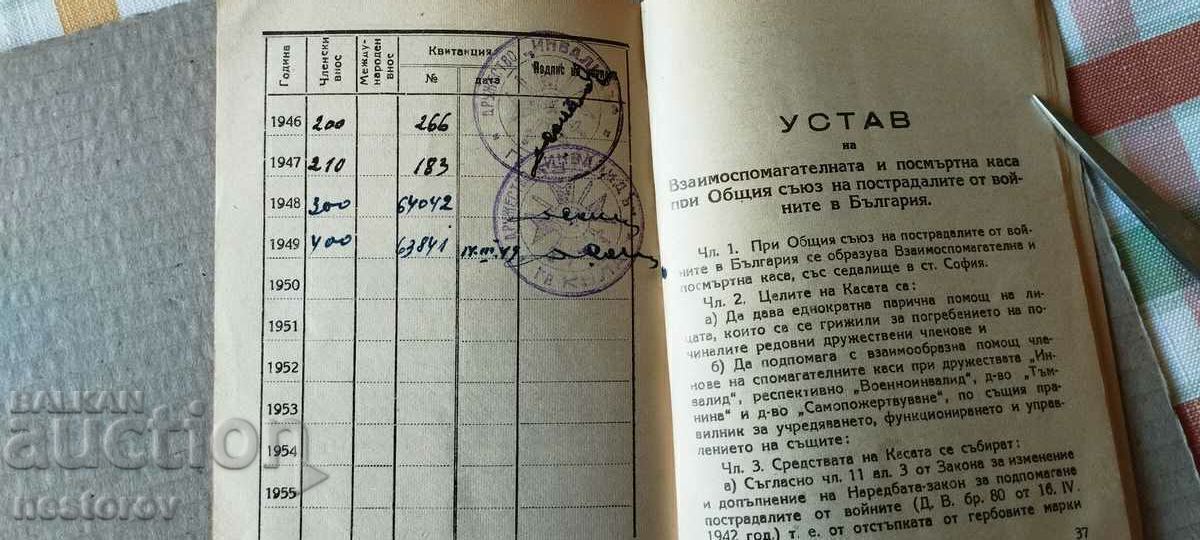 Година Членски внос Между-народен внос Квитанция № дата Подпис на
1946 200 266
1947 210 183
1948 300 64042
1949 400 63841 14.III.49
1950
1951
1952
1953
1954
1955
ДРУЖЕСТВО ИНВАЛИД
BALKAN
auction
nestorov
УСТАВ
на
Взаимоспомагателната и посмъртна каса
при Общия съюз на пострадалите от вой-
ните в България.
Чл. 1. При Общия съюз на пострадалите от вой-
ните в България се образува Взаимоспомагателна и
посмъртна каса, със седалище в ст. София.
Чл. 2. Целите на Касата са:
а) Да дава еднократна парична помощ на ли-
цата, които са се грижили за погребението на по-
чиналите редовни дружествени членове и
б) Да подпомага с взаимообразна помощ чле-
нове на спомагателните каси при дружествата „Ин-
валид", респективно „Военноинвалид", д-во „Тъм-
нина" и д-во „Самопожертвуване", по същия пра-
вилник за учредяването, функционирането и управ-
лението на същите:
Чл. 3. Средствата на Касата се събират:
а) Съгласно чл. 11 ал. 3 от Закона за изменение
и допълнение на Наредбата-закон за подпомагане
пострадалите от войните (Д. В. бр. 80 от 16. IV.
1942 год.) т. е. от отстъпката от гербовите марки
37